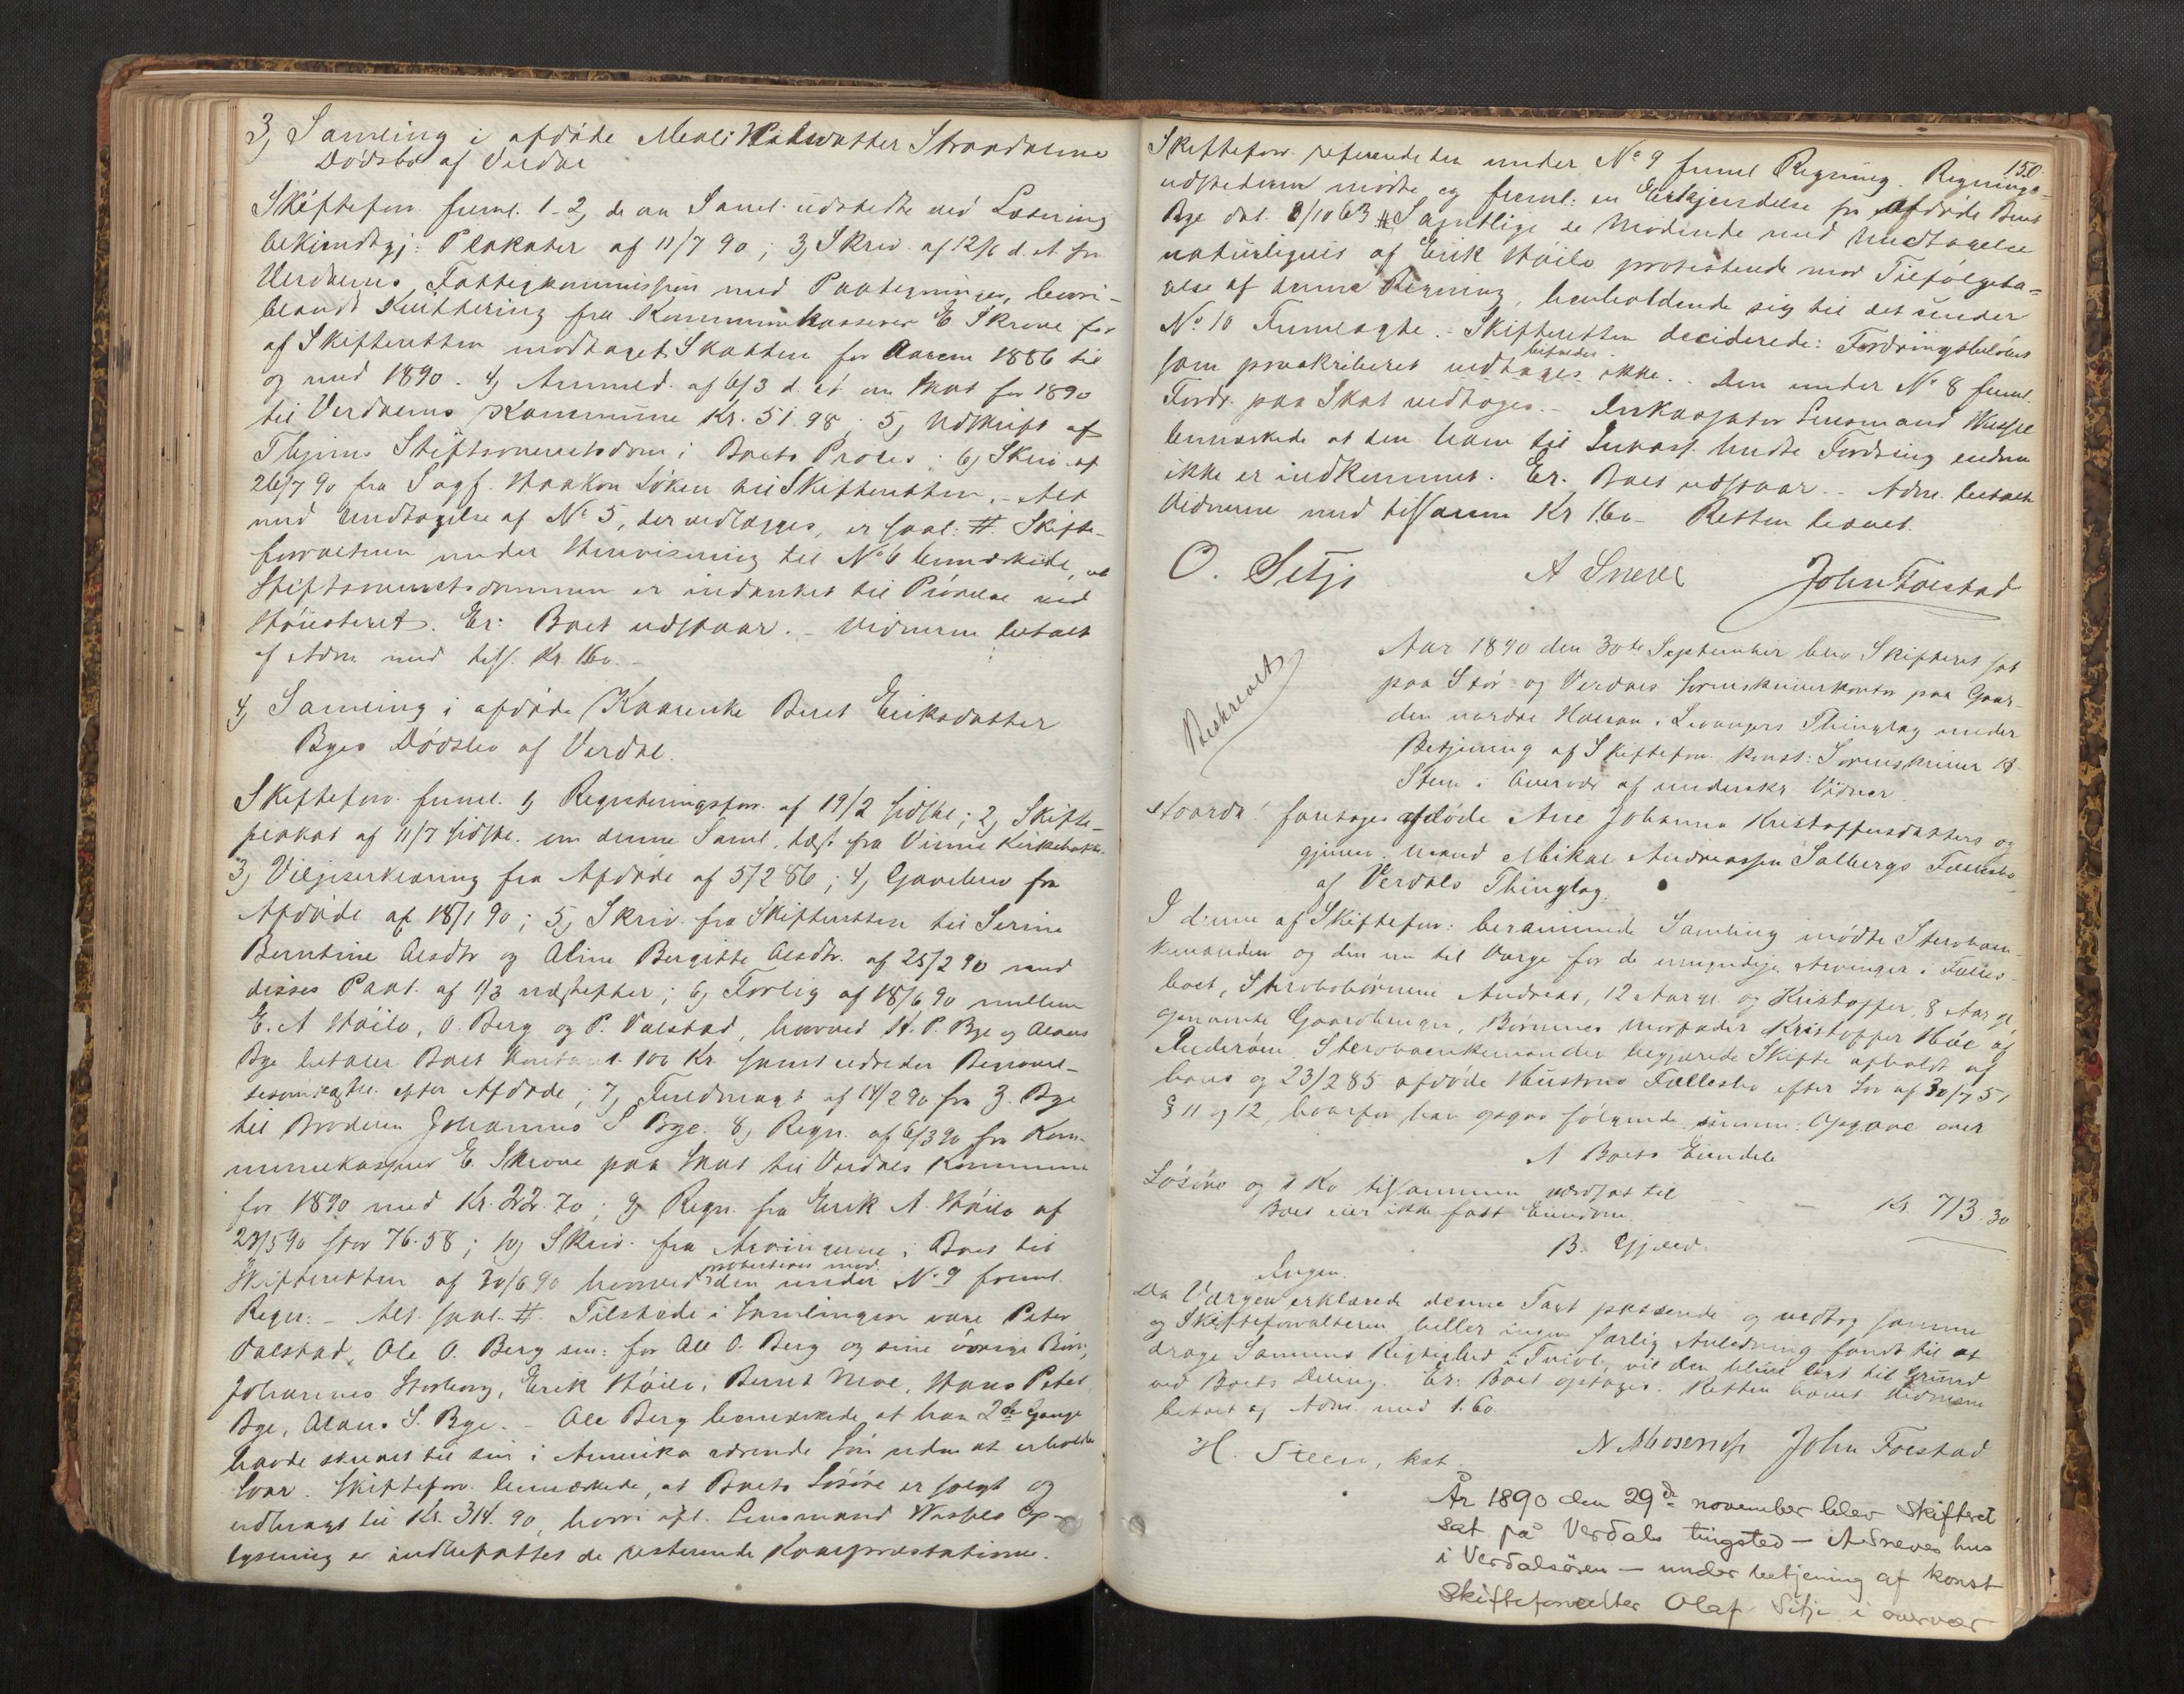 3, Samling i afdøde Meali Strandarme
Dødsbo af Verdal
Skiftefor. freml. 1-2, de om Saml. udstedte ved Læsning
bekjendtgj: Plakater af 11/7 90; 3, Skriv. af 12/6 d. A. fra
Verdalens Fattigkommission med Paategninger, hvori-
blandt Kvittering fra Kommunekasserer E Skrove for
af Skifteretten modtaget Skatten for Aarene 1886 til
og med 1890. 4, Anmeld. af 6/3 d. A. om Skat for 1890
til Verdalens Kommune Kr. 51.98; 5, Udskrift af
Thjems Stiftsoverretsdom i Boets Proces; 6, Skriv. af
26/7 90 fra Sagf. Haakon Löken til Skifteretten. - Alt
med Undtagelse af No 5, der vedlægges, er saal. #. Skifte-
forvalteren under Henvisning til No 6 bemærkede, at
Stiftsoverretsdommen er indanket til Prövelse ved
Höiesteret. Er: Boet udstaar. - Vidnerne betalt
af Adm. med tils. Kr 1.60. -
4, Samling i afdøde Kaarenke Beret Eriksdatter
Byes Dødsbo af Verdal.
Skiftefor. freml. 1, Registeringsforr. af 19/2 sidstl.; 2, Skifte-
plakat af 11/7 sidstl. om denne Saml. læst fra Vinne Kirkebakke.
3, Viljeserklæring fra Afdøde af 5/2 86; 4, Gavebrev fra
Afdøde af 18/1 90; 5, Skriv. fra Skifteretten til Serine
Berntine Olsdtr og Oline Bergitte Olsdtr. af 25/2 90 med
disses Paat. af 1/3 næstefter; 6, Forlig af 18/6 90 mellem
E. A Höilo, O. Berg og P. Valstad, hvorved H. P. Bye og Olaus
Bye betaler Boet kontant 100 Kr. samt udreder Begravel-
sesomkostn. efter Afdøde; 7, Fuldmagt af 14/2 90 fra Z. Bye
til Broderen Johannes S Bye. 8, Regn. af 6/3 90 fra Kom-
munekasserer E. Skrove paa Skat til Verdals Kommune
for 1890 med Kr. 22.70; 9, Regn. fra Erik A. Höilo af
23/5 90 stor 76.58; 10, Skriv. fra Arvingerne i Boet til
Skifteretten af 30/6 90 hvorved protesteres mod den under No 9 freml.
Regn: - Alt saal. #. Tilstede i Samlingen vare Peter
Valstad, Ole O. Berg sen: for Ole O. Berg og sine övrige Börn,
Johannes Storborg, Erik Höilo, Bernt Moe, Hans Peter
Bye, Olaus S. Bye. - Ole Berg bemærkede at han 2de Gange
havde skrevet til sin i Amerika værende Sön uden at erholde
Svar. Skiftefor. bemærkede, at Boets Lösöre er solgt og
udbragt til Kr. 314.90, hvori ifl. Lensmand Wessels Op-
lysning er indbefattet de resterende Kaarpræstationer.
150.
Skiftefor. refererede den under No 9 freml Regning. Regnings-
udstederen mødte og freml: en Erkjendelse fra Afdøde Beret
Bye dat. 8/10 63 #. Samtlige de Mødende med Undtagelse
naturligvis af Erik Höilo protesterede mod Tilfölgeta-
gelse af denne Regning, henholdende sig til det under
No 10 Fremlagte. - Skifteretten deciderede: Fordringsbeløbet
som præskriberet vedtages ikke. - Den under No 8 freml.
Fordr. paa Skat vedtoges. - Inkassator Lensmand Wessel
bemærkede at den ham til Inkass. sendte Fordring endnu
ikke er indkommet. Er. Boet udstaar. - Adm. betalt
Vidnerne med tilsammen Kr 1.60 - Retten hævet.
O. Sitje A Sneve John Tolstad
Beskrevet
Aar 1890 den 30te September blev Skifteret sat
paa Stör- og Verdals Sorenskriverkontor paa Gaar-
den nordre Halsan i Levangers Thinglag under
Betjening af Skiftefor. konst: Sorenskriver H
Steen i Overvær af underskr. Vidner
Hvorda! foretoges afdøde Ane Johanna Kristoffersdatters og
gjenlev. Mand Mikal Andreassen Salbergs Fællesbo
af Verdals Thinglag.
I denne af Skiftefor: berammede Samling mødte Stervboen-
kemanden og den nu til Værge for de umyndige Arvinger i Fælles-
boet, Stervbobørnene Andreas, 12 Aar gl. og Kristoffer, 8 Aar gl.
opnævnte Gaardbruger, Børnenes Morfader Kristoffer Höe af
Inderøen. Stervboenkemanden begjærede Skifte afholdt af
hans og 23/2 85 afdøde Hustrus Fællesbo efter Lov af 30/7 51
§ 11 og 12, hvorfor han opgav følgende summ: Opgave over
A Boets Eiendele
Lösöre og 1 Ko tilsammen værdsat til - - - Kr. 713.30
Boet eier ikke fast Eiendom.
B. Gjæld.
Ingen.
Da Værgen erklærede denne Taxt passende og vedtog samme
og Skifteforvalteren heller ingen særlig Anledning fandt til at
drage Sammes Rigtighed i Tvivl, vil den blive lagt til Grund
ved Boets Deling. Er: Boet optages. Retten hævet Vidnerne
betalt af Adm. med 1.60.
H. Steen, kst. N. Mosenøss John Tolstad
År 1890 den 29de november blev skifteret
sat på Verdals tingsted - A Sneves hus
i Verdalsören - under betjening af konst
skifteforvalter Olaf Sitje i overvær